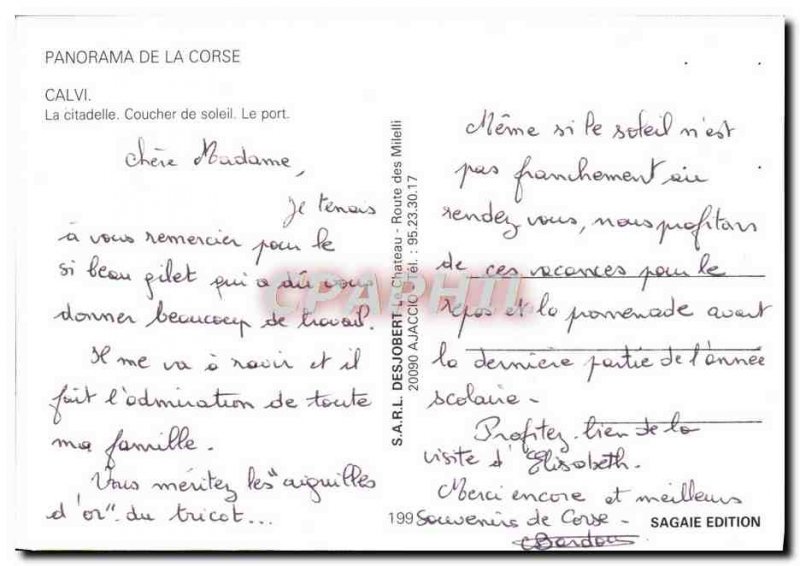 PANORAMA DE LA CORSE
CALVI.
La citadelle. Coucher de soleil. Le port.
Chère Madame,
Je tenais
à vous remercier pour le
si beau gilet qui a dû vous
donner beaucoup de travail.
Il me va à ravir et il
fait l'admiration de toute
ma famille.
Vous méritez les "aiguilles
d'or" du tricot...
S.A.R.L. DESJOBERT L. Chateau - Route des Milelli
20090 AJACCIO - Tél. : 95.23.30.17
CPAPHIL
Même si le soleil n'est
pas franchement au
rendez vous, nous profitons
de ces vacances pour le
repos et la promenade avant
la dernière partie de l'année
scolaire -
Profitez bien de la
visite d'Elisabeth.
Merci encore et meilleurs
199 Souvenirs de Corse -
SAGAIE EDITION